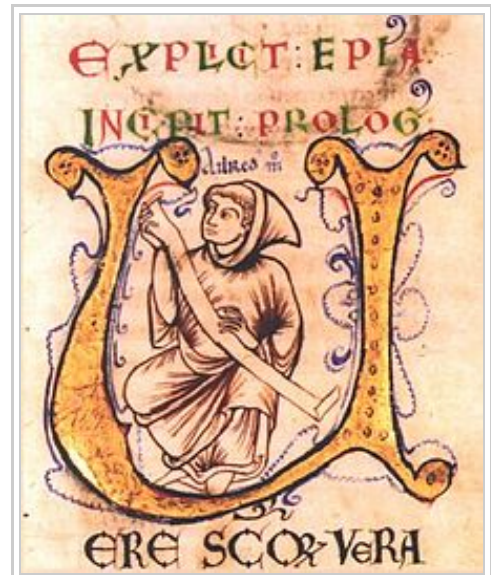 EXPLICIT : EPLA
INCIPIT : PROLOG
U
ERE SCOꝜ VERA